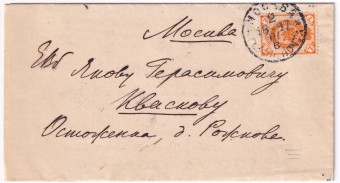 Москва
Евб Якову Герасимовичу
Кваскову
Остоженка, д. Рожнова.
МОСКВА